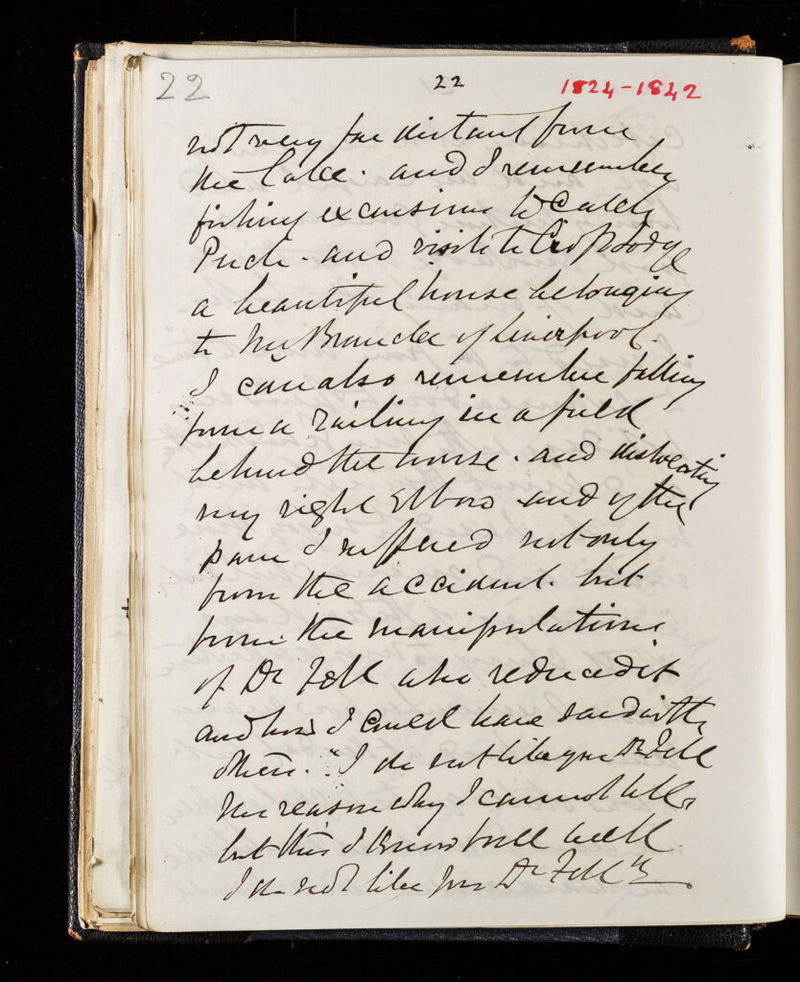 22 22 1824-1842
not very far distant from
the Lake. and I remember
fishing excursions to Catch
Perch - and visits to
a beautiful house belonging
to Mr of Liverpool.
I can also remember falling
from a railing in a field
behind the house. and dislocating
my right Elbow and of the
pain I suffered not only
from the accident. but
from the manipulations
of Dr Fell who reduced it
and how I could have said with
others. "I do not like you Dr Fell
the reason why I cannot tell
but this I know full well
I do not like you Dr Fell"